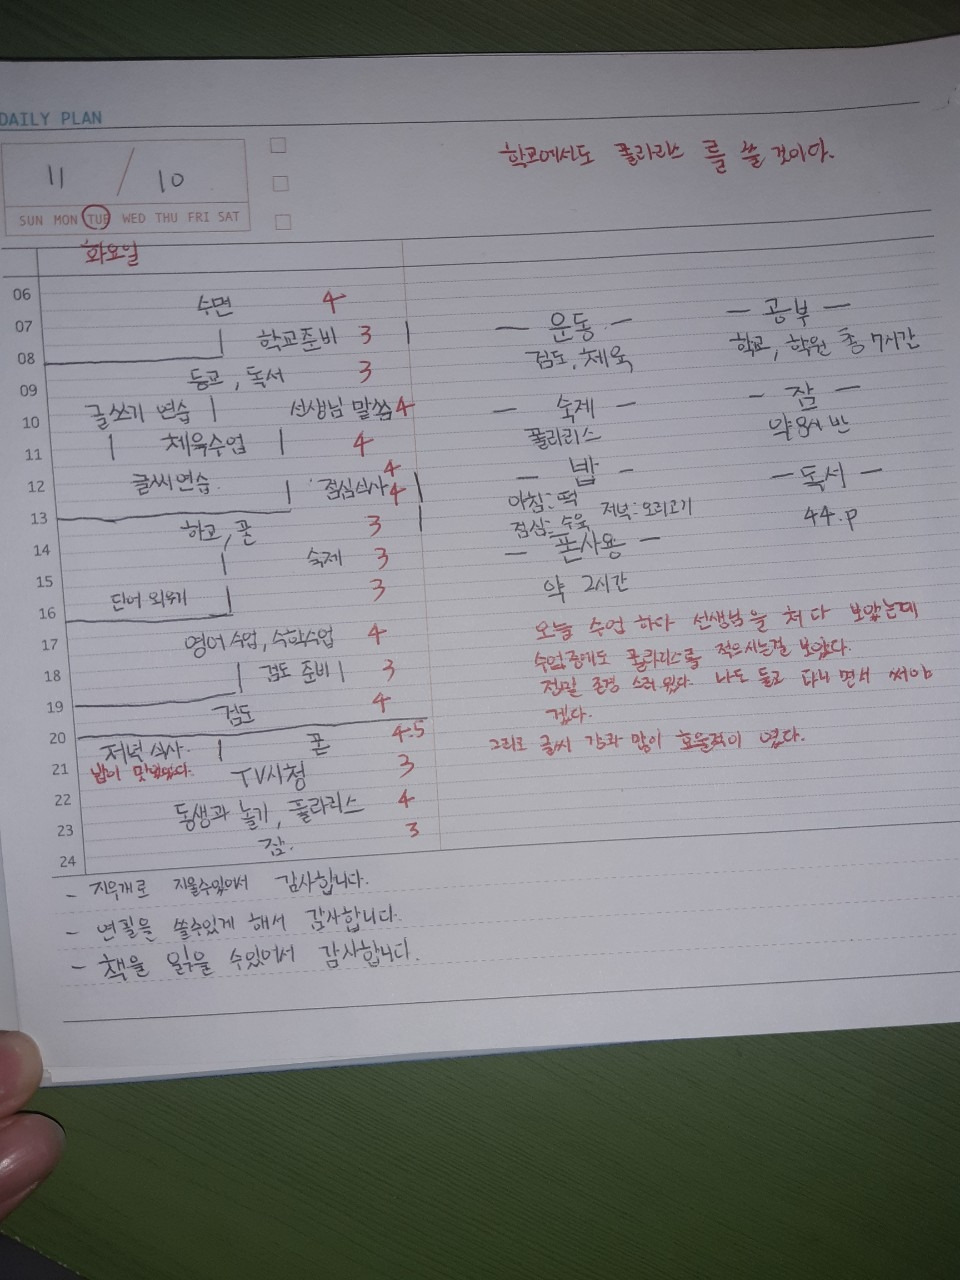 DAILY PLAN
11 / 10
SUN MON TUE WED THU FRI SAT
화요일
학교에서도 폴라리스 를 쓸 것이다.
06
수면 4
07
학교준비 3
08
등교, 독서 3
09
글쓰기 연습 선생님 말씀 4
10
체육수업 4
11
글씨연습 4
12
점심식사 4
13
하교, 폰 3
14
숙제 3
15
단어 외우기 3
16
영어수업, 수학수업 4
17
검도 준비 3
18
검도 4
19
20
저녁식사 폰 4.5
밥이 맛있었다.
21
TV시청 3
22
동생과 놀기, 폴라리스 4
23
잠. 3
24
- 운동 -
검도, 체육
- 공부 -
학교, 학원 총 7시간
- 숙제 -
폴라리스
- 잠 -
약 8시 반
- 밥 -
아침: 떡
점심: 수육 저녁: 오리고기
- 독서 -
44.p
- 폰사용 -
약 2시간
오늘 수업 하다 선생님을 쳐다 보았는데
수업중에도 폴라리스를 적으시는걸 보았다.
정말 존경 스러 웠다. 나도 들고 다니 면서 써야
겠다.
그리고 글씨 많이 였다.
- 지우개로 지울수있어서 감사합니다.
- 연필을 쓸수있게 해서 감사합니다.
- 책을 읽을 수있어서 감사합니다.